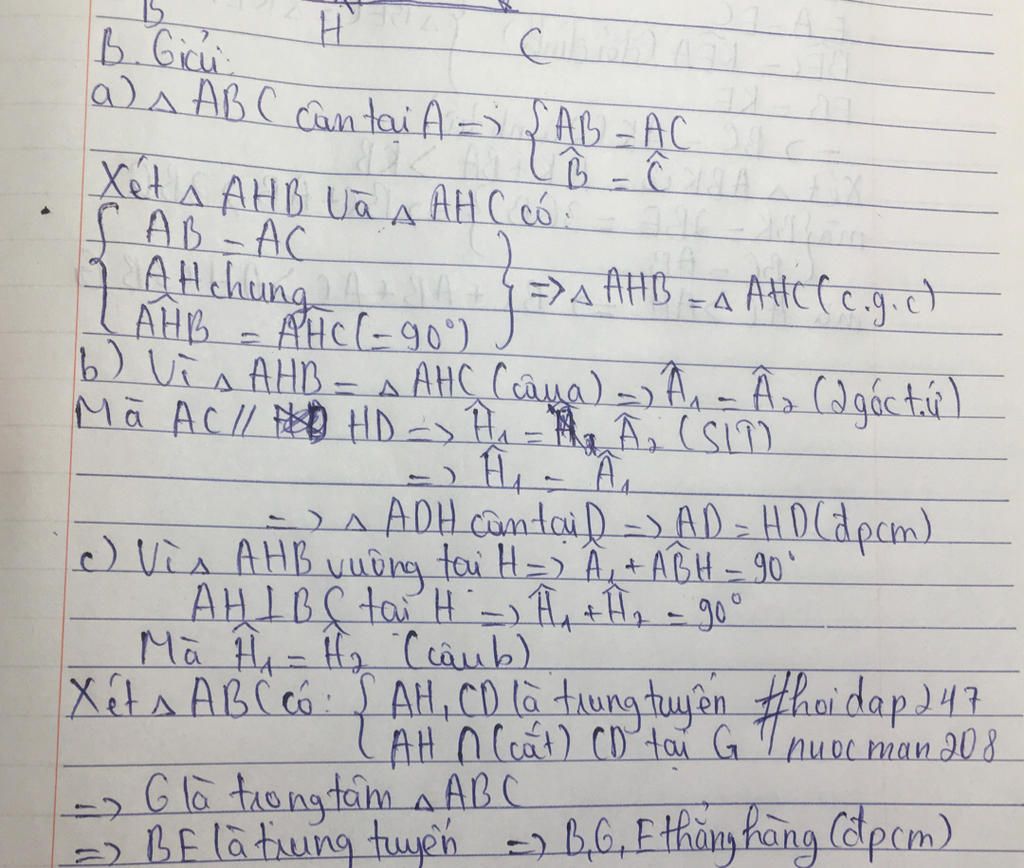 B
H
C
B. Giải:
a) △ ABC cân tại A => { AB = AC
B̂ = Ĉ
Xét △ AHB và △ AHC có:
{ AB = AC
AH chung
AĤB = AĤC (= 90°) } => △ AHB = △ AHC (c.g.c)
b) Vì △ AHB = △ AHC (câu a) => Â₁ = Â₂ (2 góc t.ứ)
Mà AC // HD => Ĥ₁ = Â₂ (SLT)
=> Ĥ₁ = Â₁
=> △ ADH cân tại D => AD = HD (đpcm)
c) Vì △ AHB vuông tại H => Â₁ + AB̂H = 90°
AH ⊥ BC tại H => Ĥ₁ + Ĥ₂ = 90°
Mà Ĥ₁ = Ĥ₂ (câu b)
Xét △ ABC có: { AH, CD là trung tuyến #hoidap247
AH ∩ (cắt) CD tại G nuocman208
=> G là trọng tâm △ ABC
=> BE là trung tuyến => B, G, E thẳng hàng (đpcm)